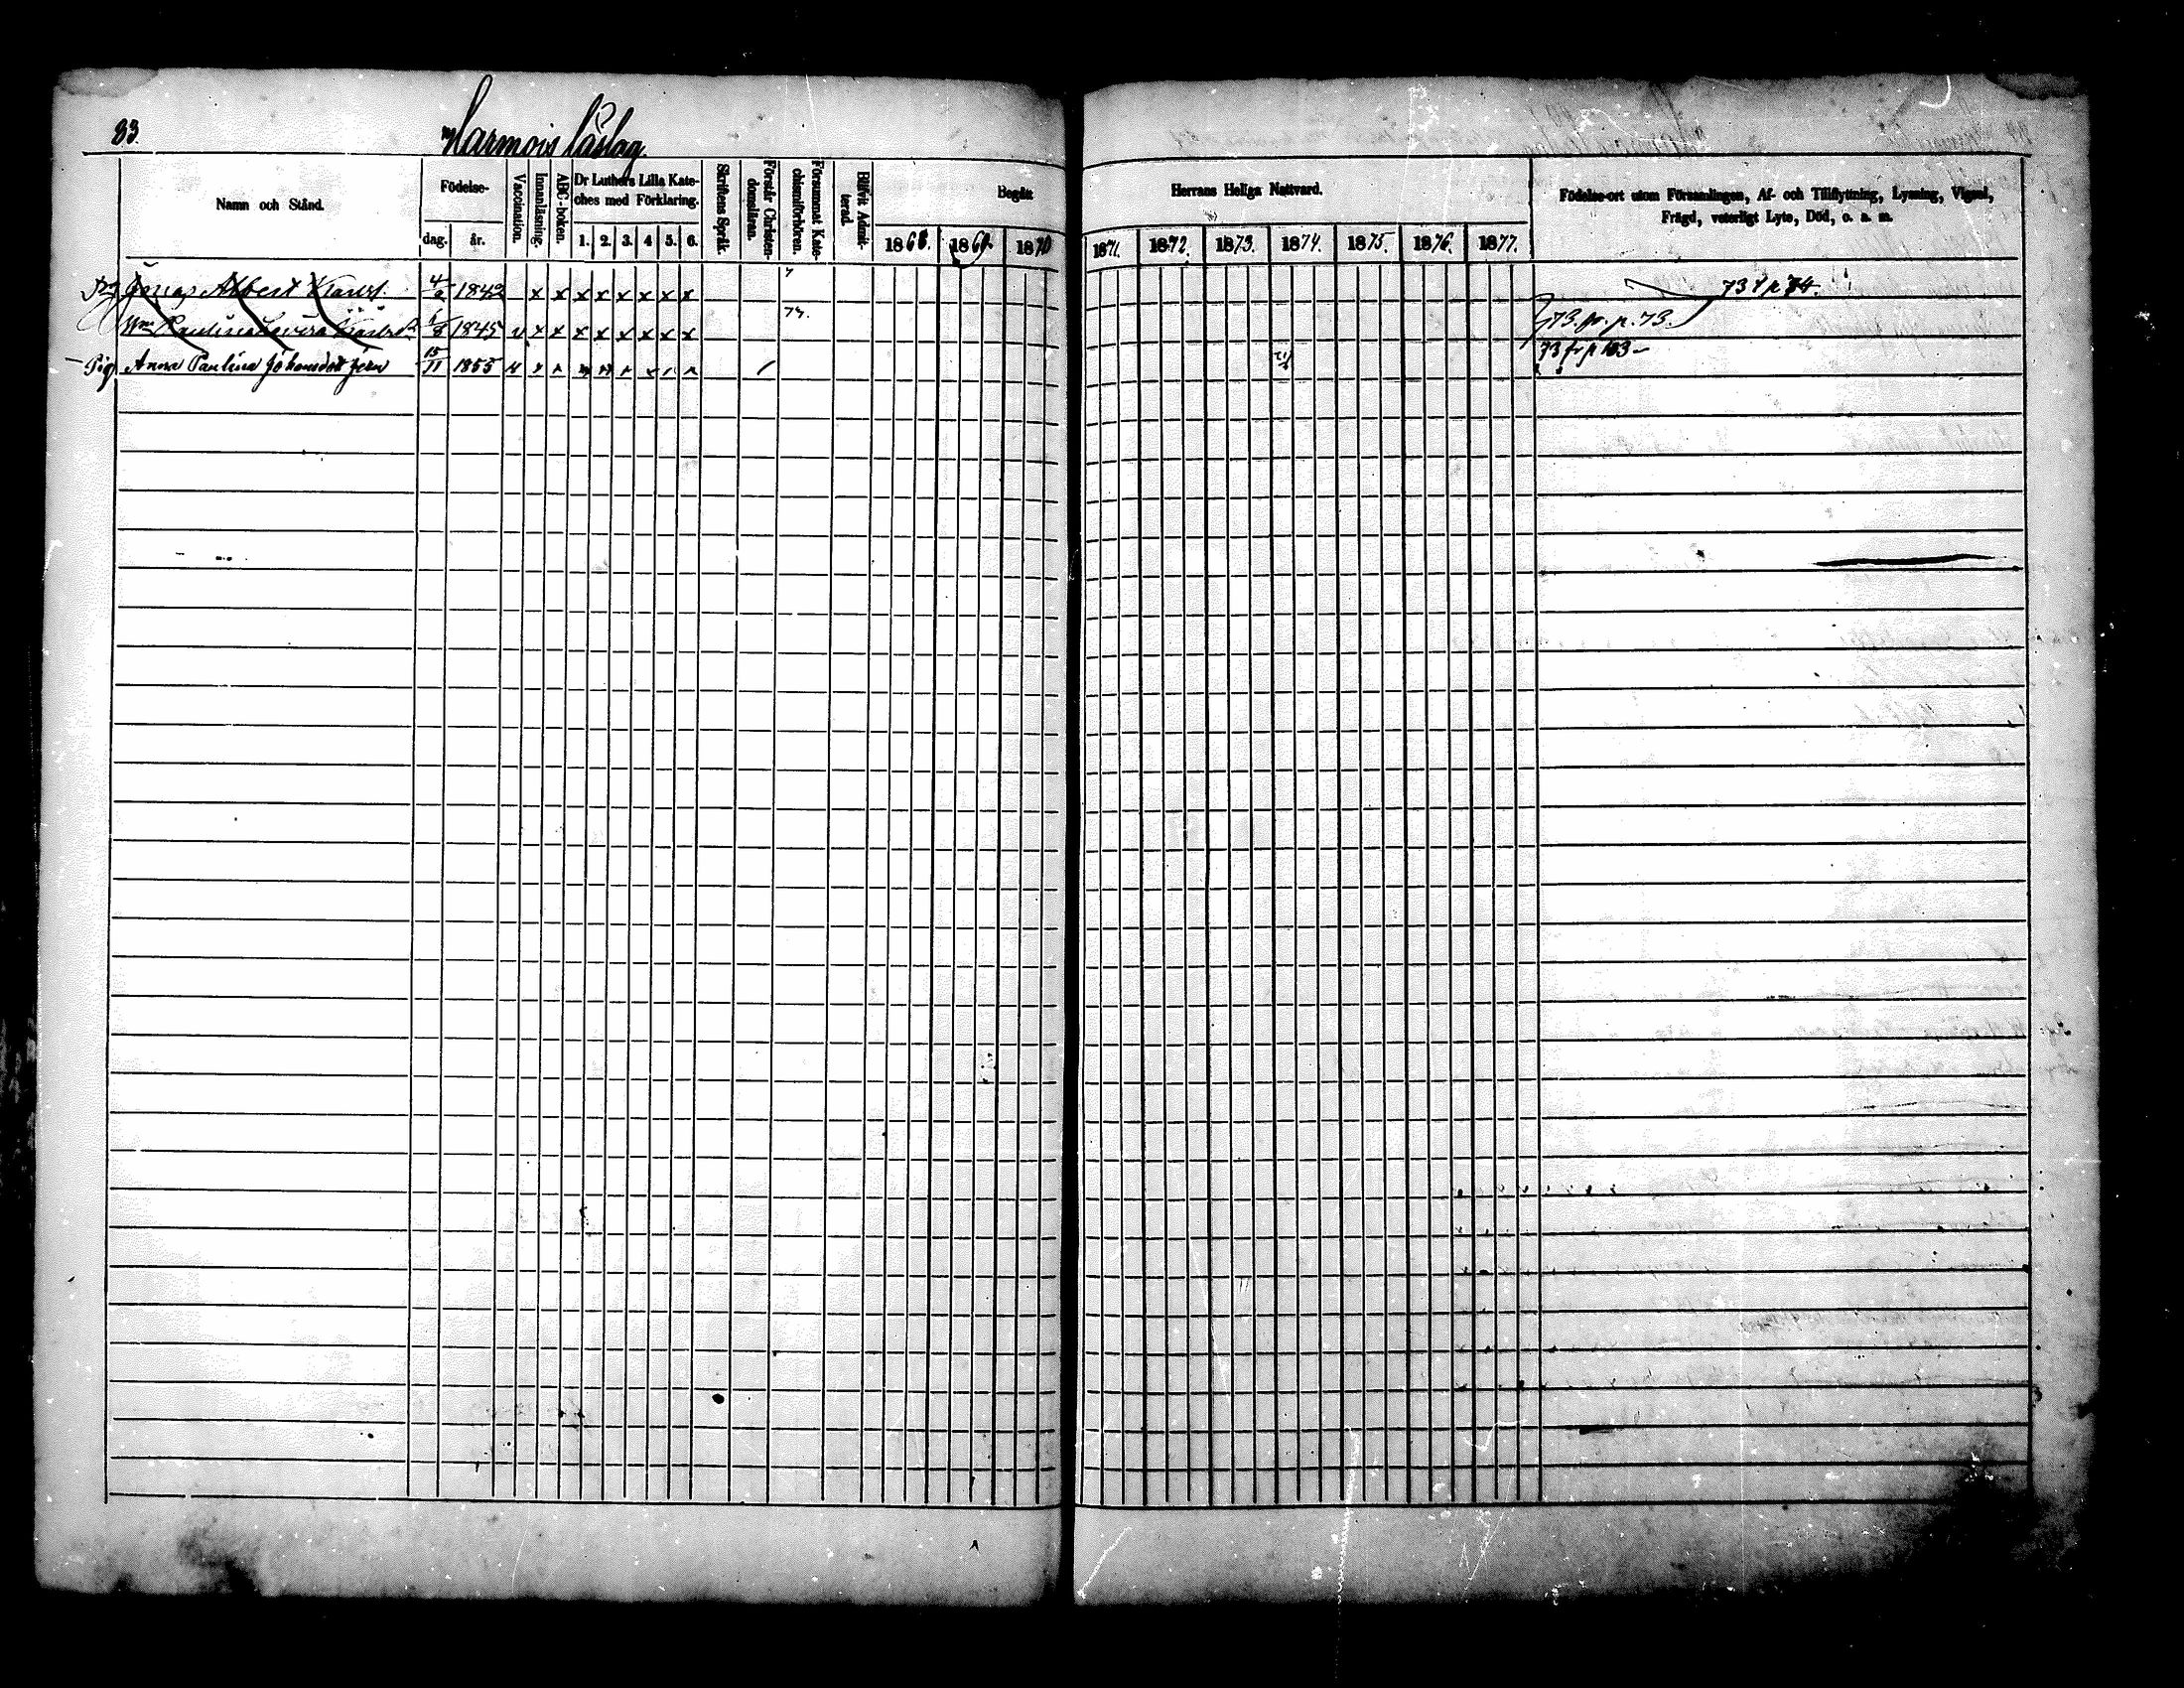 83.
Larmois läslag.
Namn och Stånd.
Födelse-
dag. år.
Vaccination.
Innanläsning.
ABC-boken.
Dr Luthers Lilla Kate-
ches med Förklaring.
1. 2. 3. 4 5. 6.
Skriftens Språk.
Förstår Christen-
domsläran.
Försummat Kate-
chismiförhören.
Blifvit Admit-
terad.
Begått
1868. 1869. 1870
Herrans Heliga Nattvard.
1871. 1872. 1873. 1874. 1875. 1876. 1877.
Födelse-ort utom Församlingen, Af- och Tillflyttning, Lysning, Vigsel,
Frägd, veterligt Lyte, Död, o. a. m.
Jonas Albert 4 1842 x x x x x x x x 73 t p 74.
Paulina Lovisa 8 1845 v x x x x x x x x 73. fr. p. 73.
Pig Anna Paulina Johansdott 15/11 1855 73 fr p 103